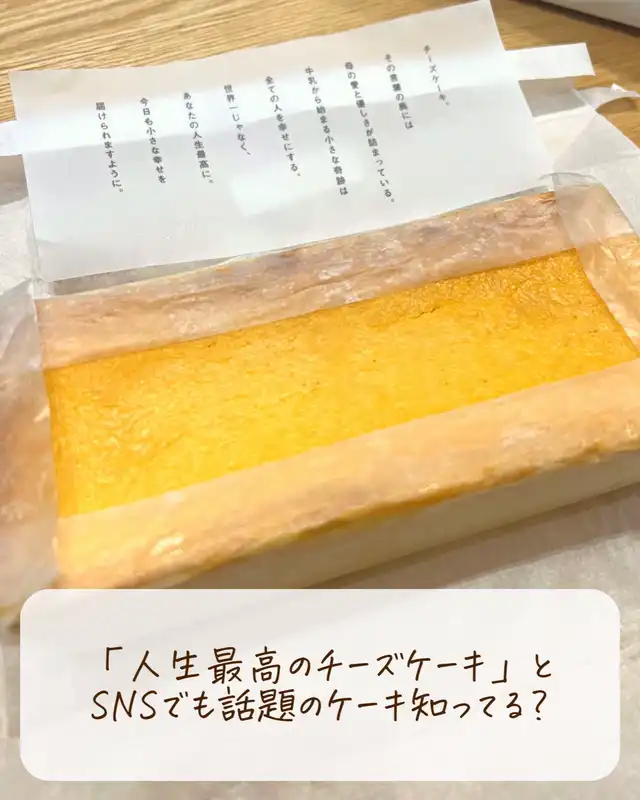 チーズケーキ。
その言葉の裏には
母の愛と優しさが詰まっている。
牛乳から始まる小さな奇跡は
全ての人を幸せにする。
世界一じゃなく、
あなたの人生最高に。
今日も小さな幸せを
届けられますように。
「人生最高のチーズケーキ」と
SNSでも話題のケーキ知ってる?